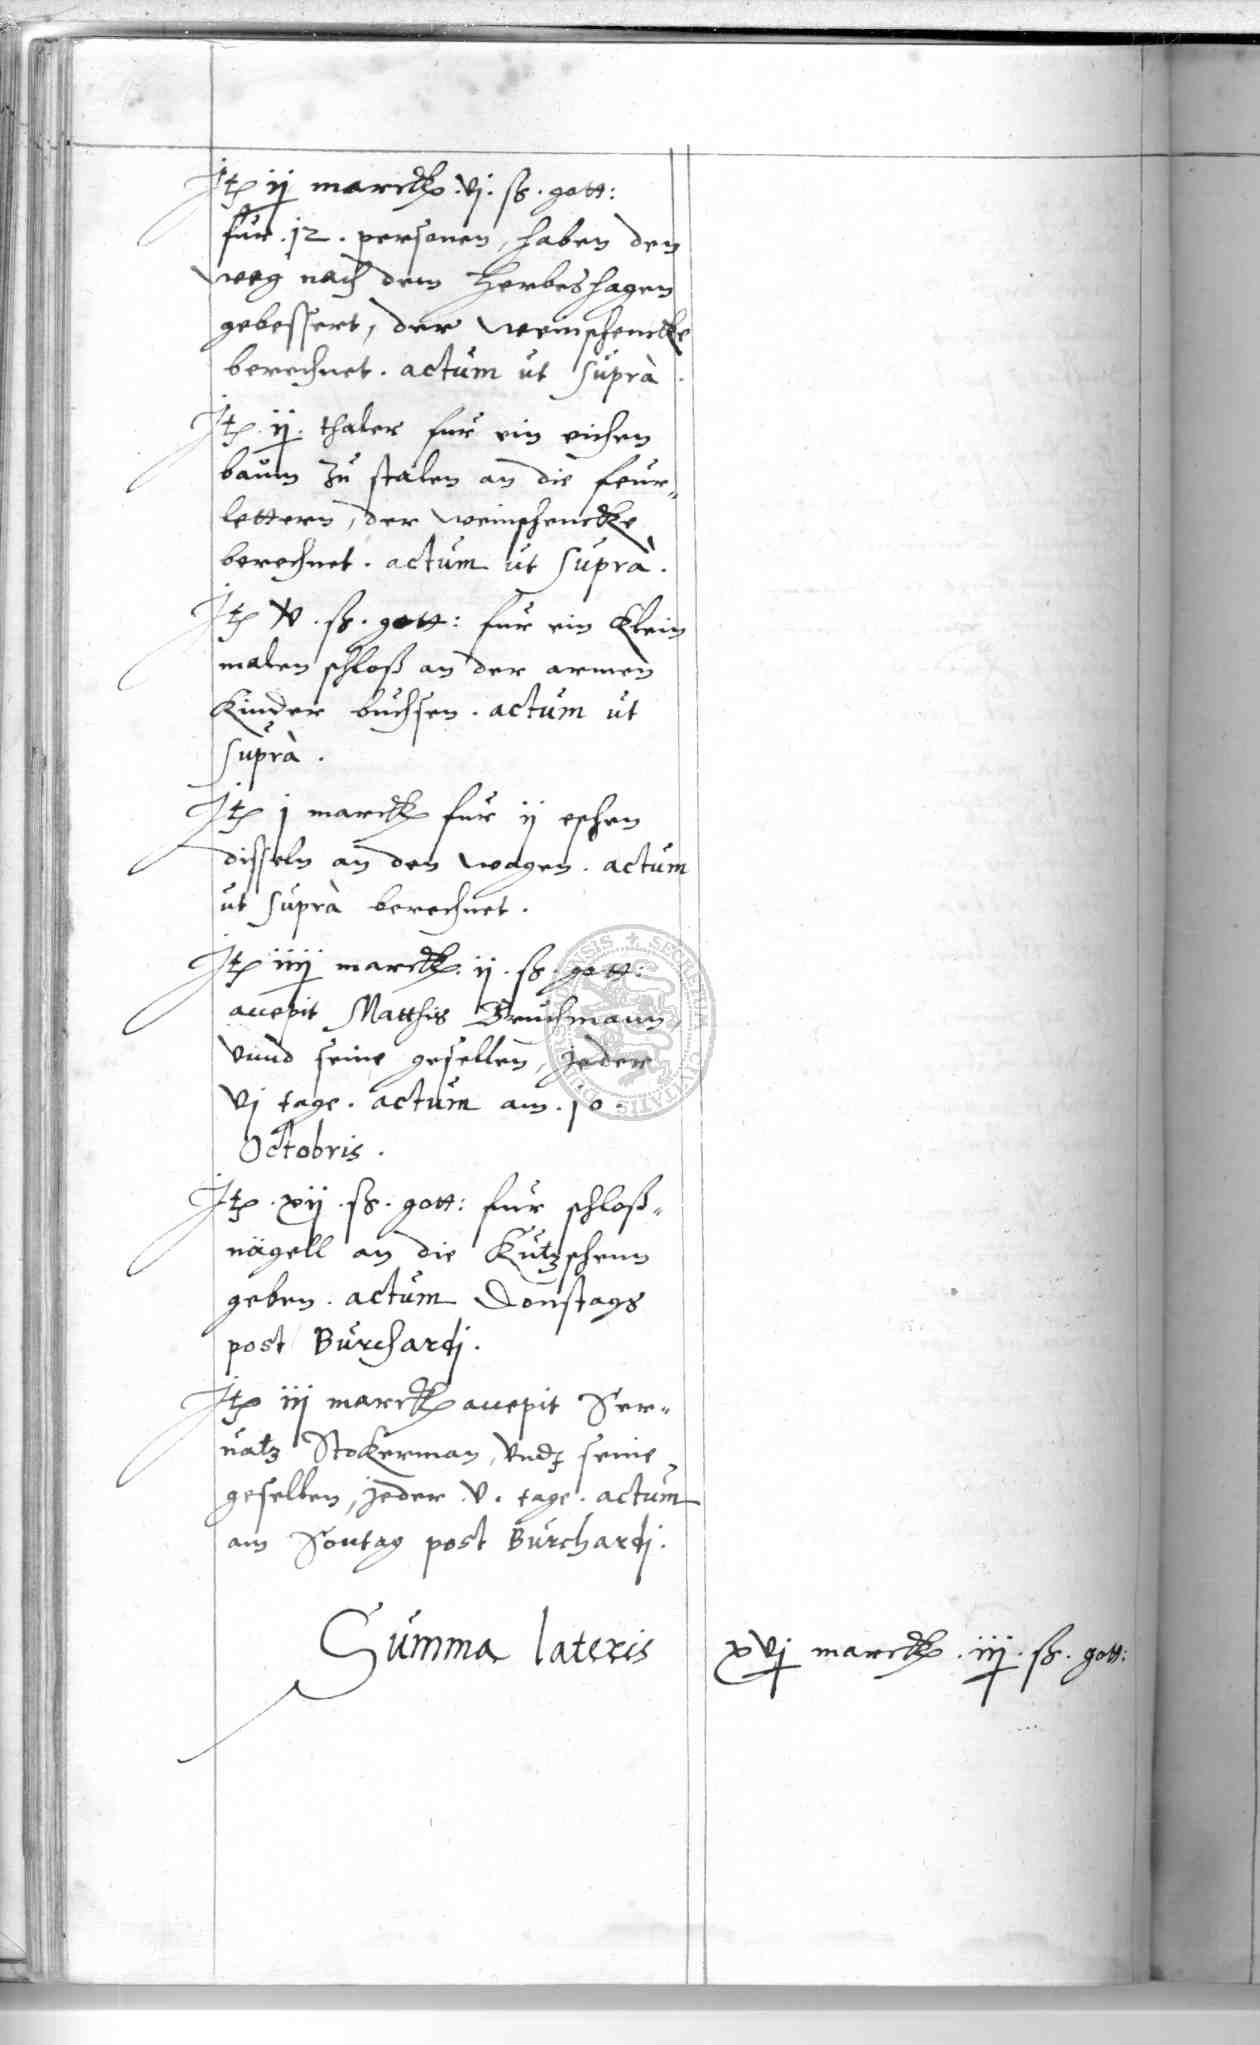 Jtem ij marck .vj. ß. gott:
für .12. personen, haben den
weg nach dem Herbeshagen
gebessert, der weinschencke
berechnet. actum ut suprà.
Jtem .ij. thaler fur ein eichen
baum zu stalen an die feur-
lettern, der weinschencke
berechnet. actum ut suprà.
Jtem v .ß. gott: fur ein klein
malen schloß an der armen
Kinder buchsen. actum ut
suprà.
Jtem j marck fur ij eschen
disseln an den wagen. actum
ut suprà berechnet.
Jtem iiij marck. ij .ß. gott:
accepit Matthis
vnnd seine gesellen, jeder
vj tage. actum am .10.
Octobris.
Jtem .xij .ß. gott: fur schloß-
nägell an die Kutzschenn
geben. actum Donstags
post Burchardj.
Jtem iij marck accepit Ser-
uatz Stokerman, vnd seine
gesellen, jeder .v. tage. actum
am Sontag post Burchardj.
Summa lateris xvj marck .iij. ß. gott: